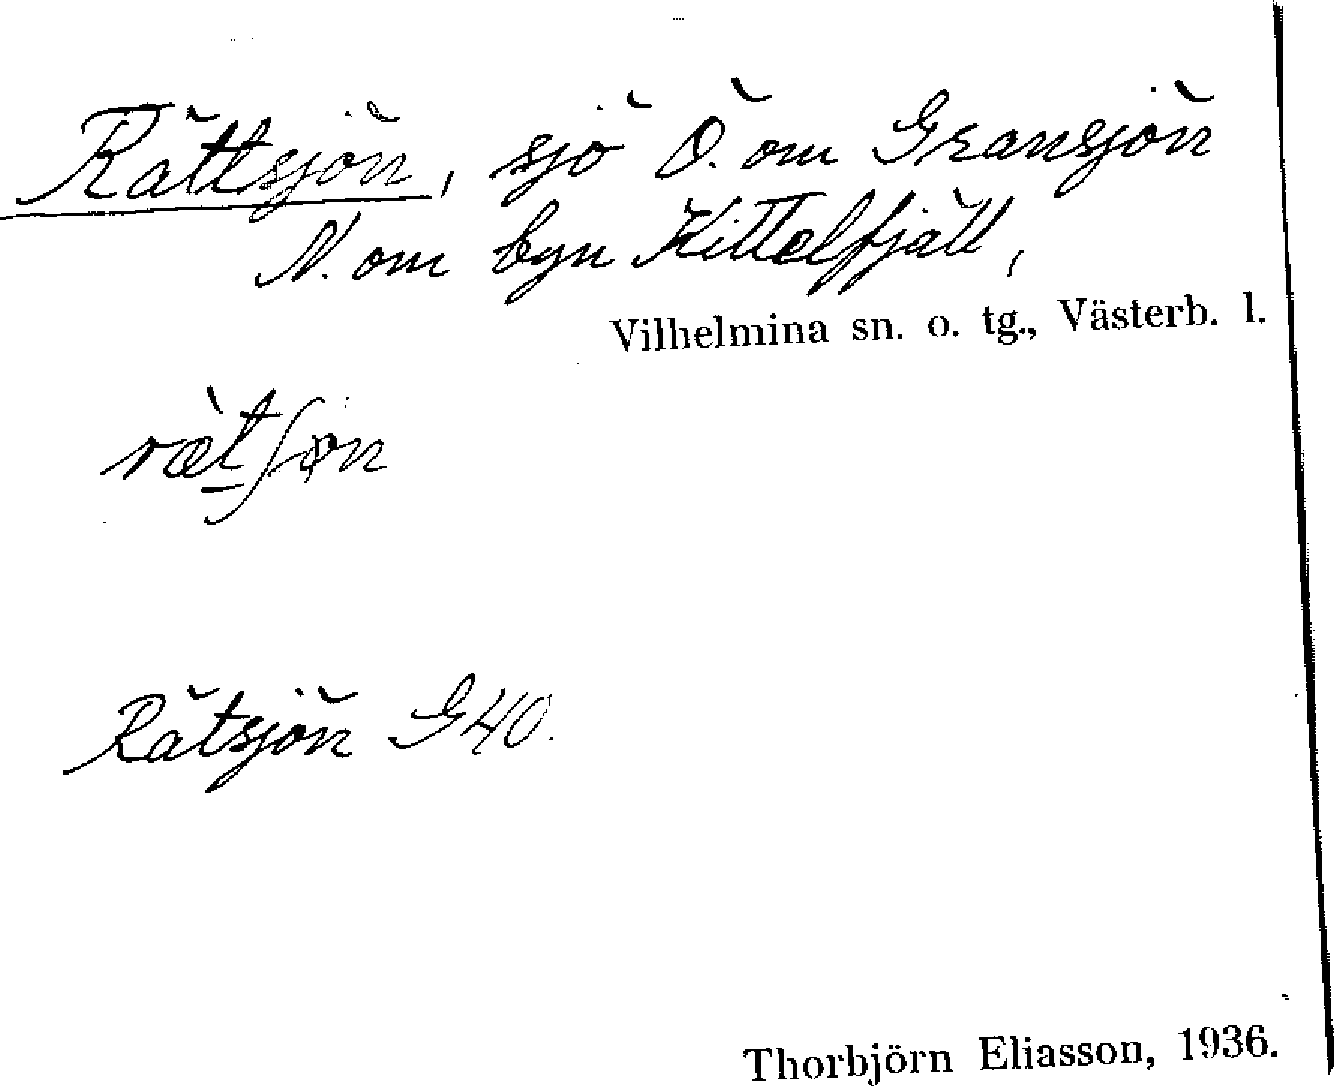 Rättsjön, sjö Ö. om Gransjön
N. om byn Kittelfjäll,
Vilhelmina sn. o. tg., Västerb. l.
rætʃøn
Rätsjön G40.
Thorbjörn Eliasson, 1936.